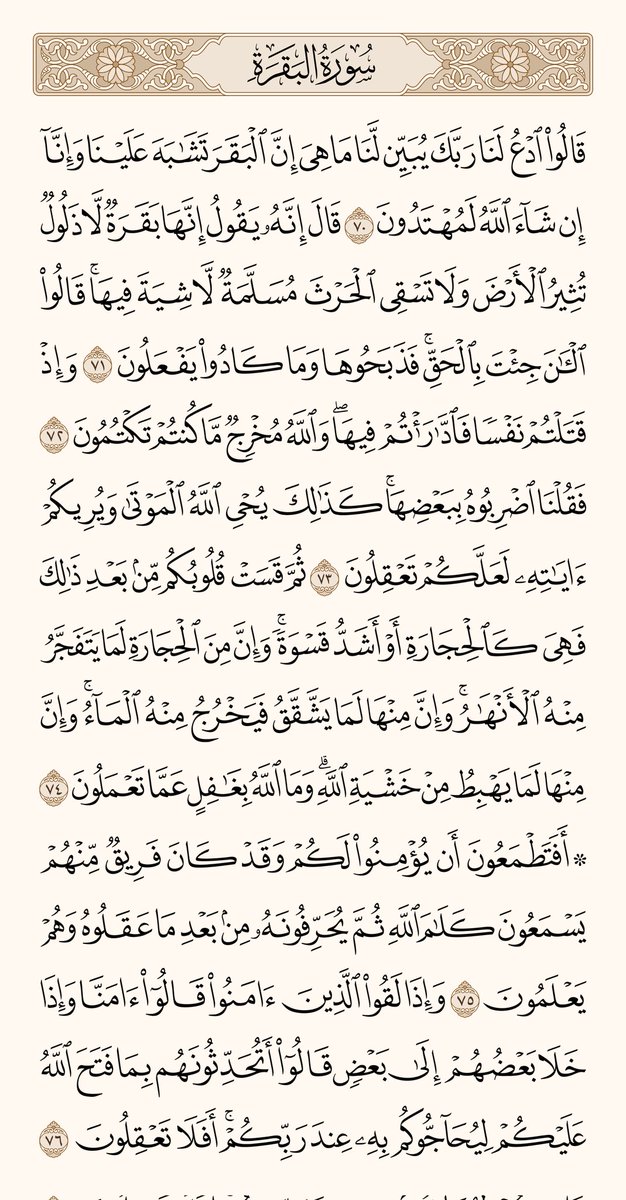 سُورَةُ البَقَرَةِ
قَالُوا۟ ٱدْعُ لَنَا رَبَّكَ يُبَيِّن لَّنَا مَا هِىَ إِنَّ ٱلْبَقَرَ تَشَٰبَهَ عَلَيْنَا وَإِنَّآ
إِن شَآءَ ٱللَّهُ لَمُهْتَدُونَ ٧٠ قَالَ إِنَّهُۥ يَقُولُ إِنَّهَا بَقَرَةٌ لَّا ذَلُولٌ
تُثِيرُ ٱلْأَرْضَ وَلَا تَسْقِى ٱلْحَرْثَ مُسَلَّمَةٌ لَّا شِيَةَ فِيهَا ۚ قَالُوا۟
ٱلْـَٰٔنَ جِئْتَ بِٱلْحَقِّ ۚ فَذَبَحُوهَا وَمَا كَادُوا۟ يَفْعَلُونَ ٧١ وَإِذْ
قَتَلْتُمْ نَفْسًا فَٱدَّٰرَْٰٔتُمْ فِيهَا ۖ وَٱللَّهُ مُخْرِجٌ مَّا كُنتُمْ تَكْتُمُونَ ٧٢
فَقُلْنَا ٱضْرِبُوهُ بِبَعْضِهَا ۚ كَذَٰلِكَ يُحْىِ ٱللَّهُ ٱلْمَوْتَىٰ وَيُرِيكُمْ
ءَايَٰتِهِۦ لَعَلَّكُمْ تَعْقِلُونَ ٧٣ ثُمَّ قَسَتْ قُلُوبُكُم مِّنۢ بَعْدِ ذَٰلِكَ
فَهِىَ كَٱلْحِجَارَةِ أَوْ أَشَدُّ قَسْوَةً ۚ وَإِنَّ مِنَ ٱلْحِجَارَةِ لَمَا يَتَفَجَّرُ
مِنْهُ ٱلْأَنْهَٰرُ ۚ وَإِنَّ مِنْهَا لَمَا يَشَّقَّقُ فَيَخْرُجُ مِنْهُ ٱلْمَآءُ ۚ وَإِنَّ
مِنْهَا لَمَا يَهْبِطُ مِنْ خَشْيَةِ ٱللَّهِ ۗ وَمَا ٱللَّهُ بِغَٰفِلٍ عَمَّا تَعْمَلُونَ ٧٤
۞ أَفَتَطْمَعُونَ أَن يُؤْمِنُوا۟ لَكُمْ وَقَدْ كَانَ فَرِيقٌ مِّنْهُمْ
يَسْمَعُونَ كَلَٰمَ ٱللَّهِ ثُمَّ يُحَرِّفُونَهُۥ مِنۢ بَعْدِ مَا عَقَلُوهُ وَهُمْ
يَعْلَمُونَ ٧٥ وَإِذَا لَقُوا۟ ٱلَّذِينَ ءَامَنُوا۟ قَالُوٓا۟ ءَامَنَّا وَإِذَا
خَلَا بَعْضُهُمْ إِلَىٰ بَعْضٍ قَالُوٓا۟ أَتُحَدِّثُونَهُم بِمَا فَتَحَ ٱللَّهُ
عَلَيْكُمْ لِيُحَآجُّوكُم بِهِۦ عِندَ رَبِّكُمْ ۚ أَفَلَا تَعْقِلُونَ ٧٦